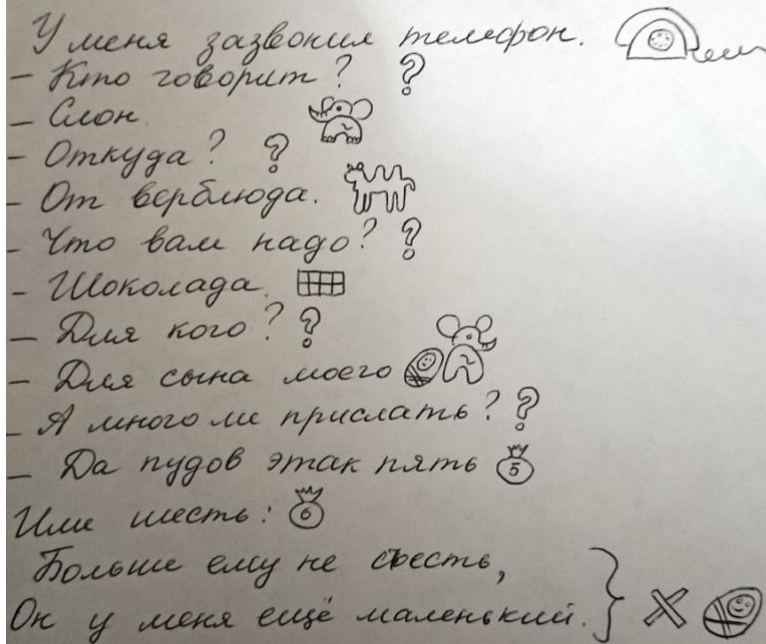 У меня зазвонил телефон.
– Кто говорит? ?
– Слон.
– Откуда? ?
– От верблюда.
– Что вам надо? ?
– Шоколада.
– Для кого? ?
– Для сына моего
– А много ли прислать? ?
– Да пудов этак пять 5
Или шесть: 6
Больше ему не съесть,
Он у меня ещё маленький.